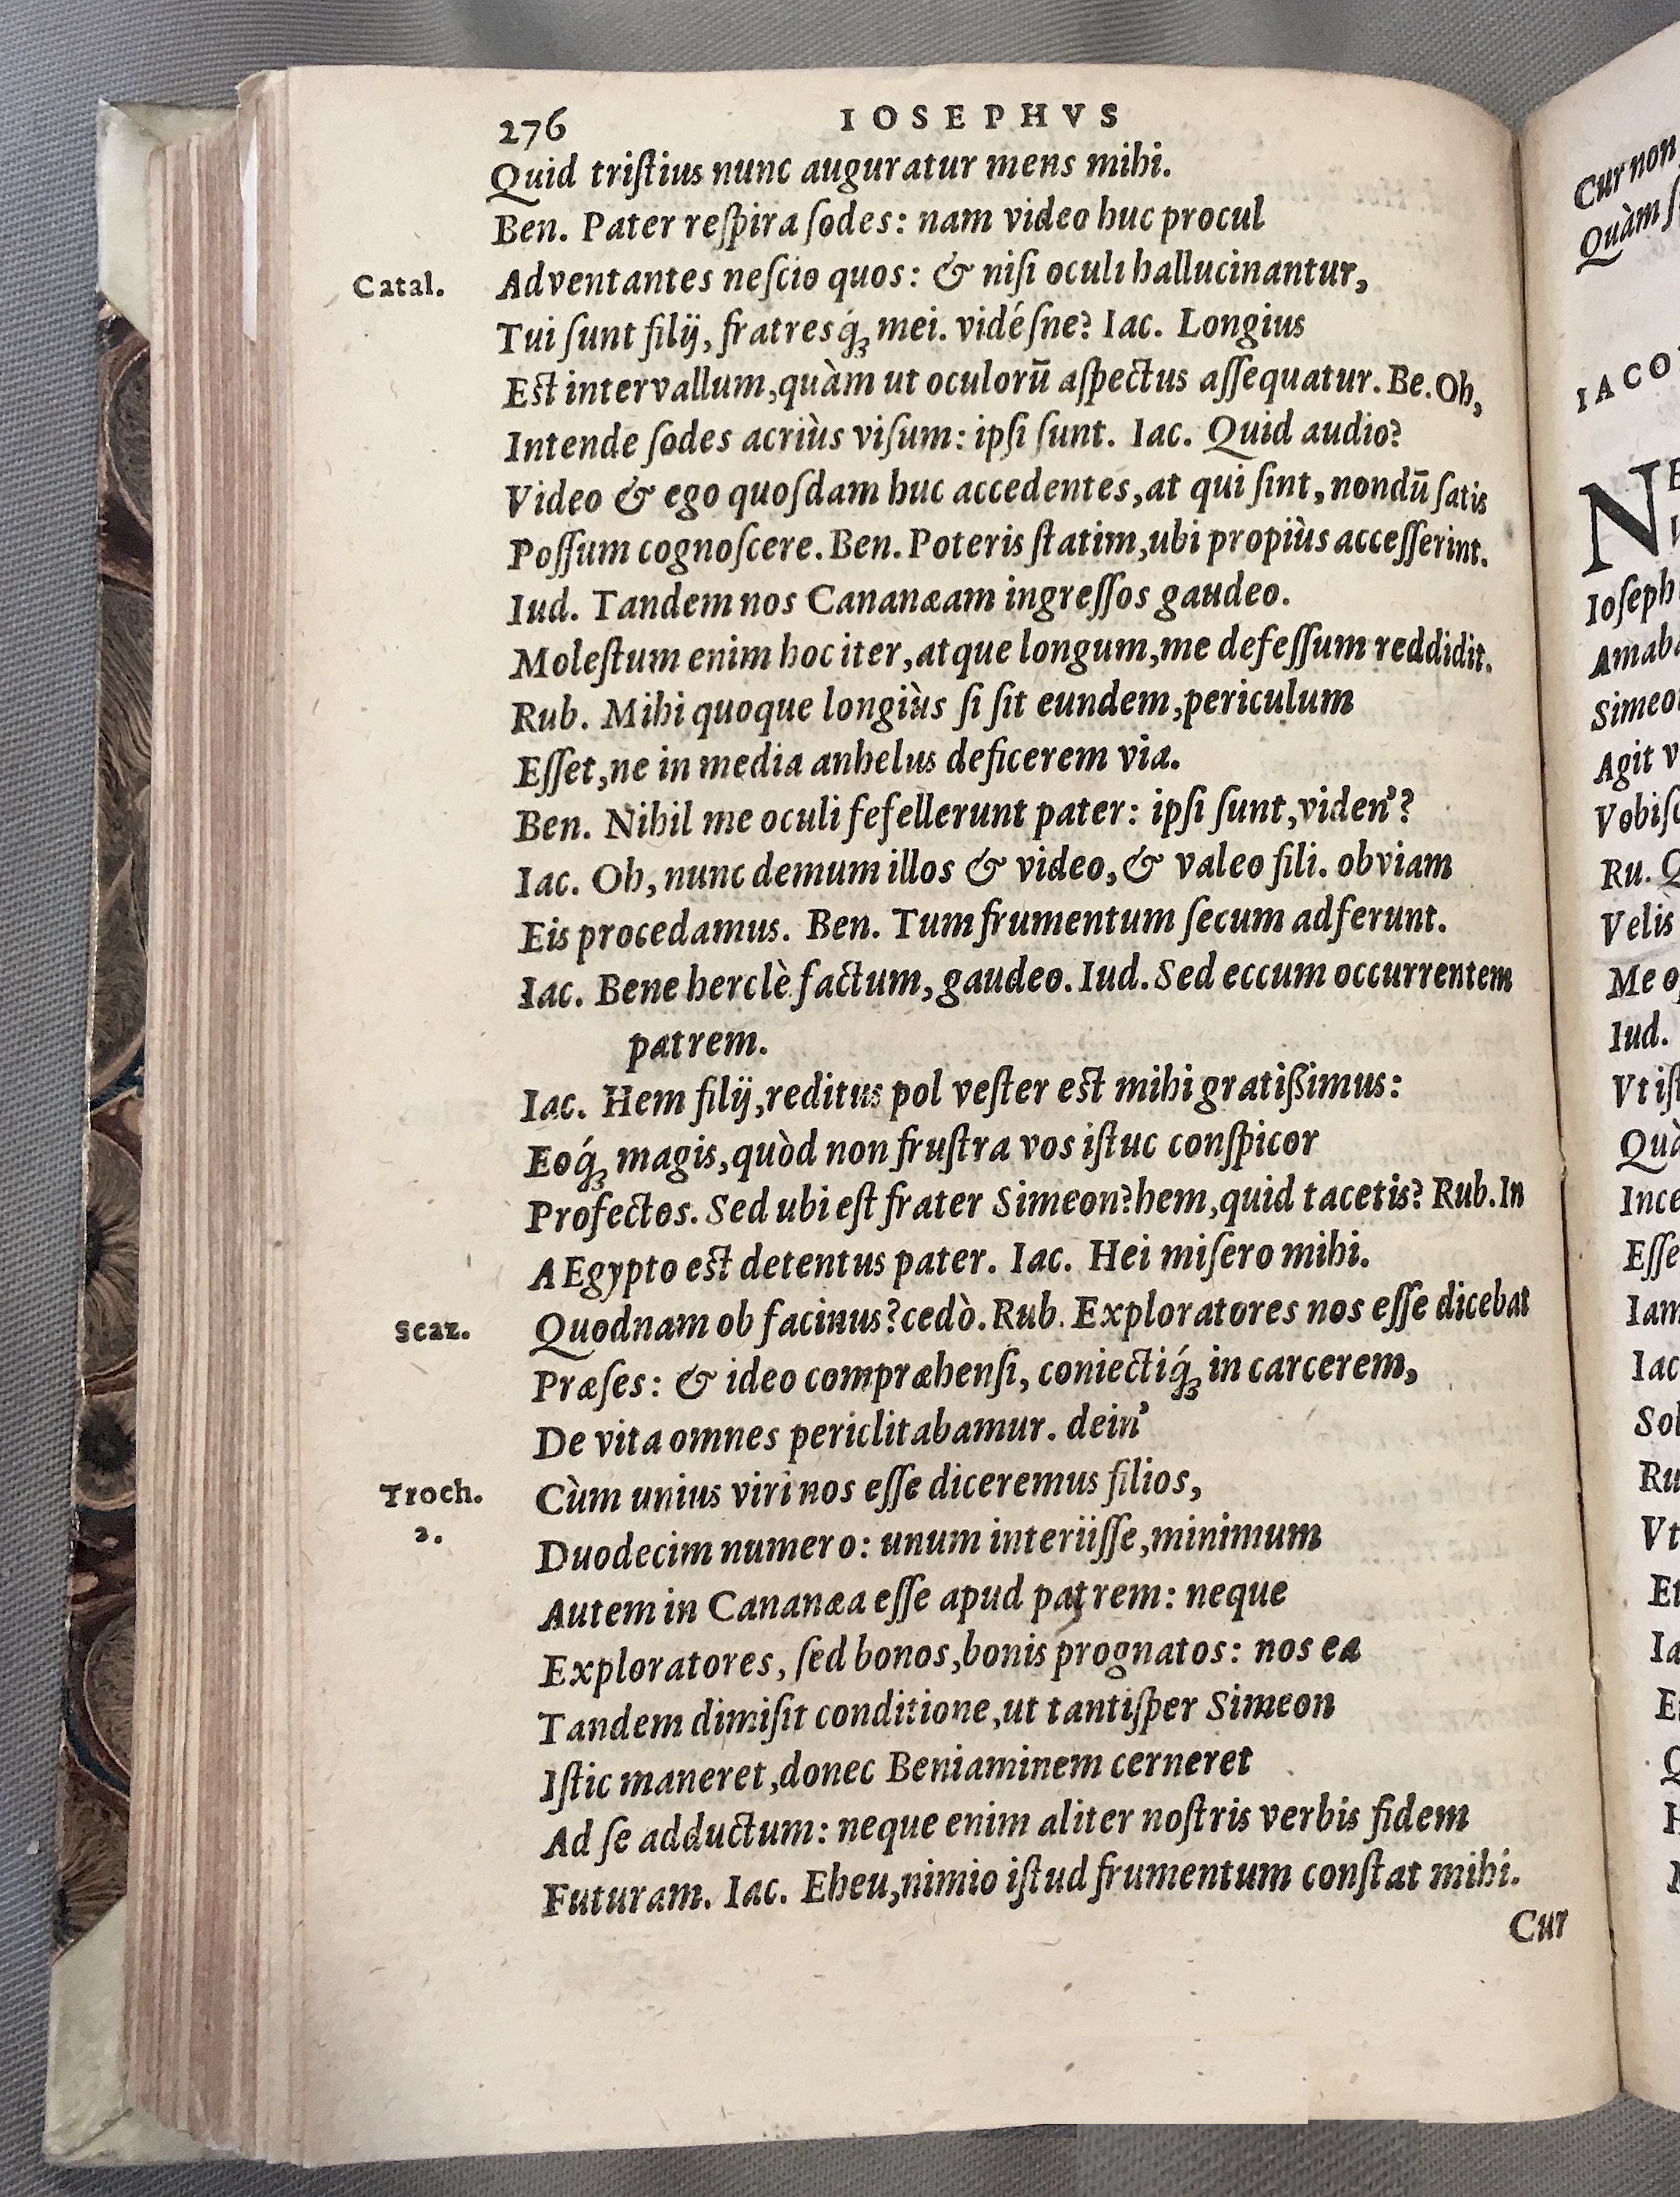 276 IOSEPHVS
Quid triſtius nunc auguratur mens mihi.
Ben. Pater reſpira ſodes: nam video huc procul
Catal. Adventantes neſcio quos: & niſi oculi hallucinantur,
Tui ſunt filij, fratresq́ꝫ mei. vidéſne? Iac. Longius
Est intervallum, quàm ut oculorū aſpectus aſſequatur. Be. Oh,
Intende ſodes acriùs viſum: ipſi ſunt. Iac. Quid audio?
Video & ego quoſdam huc accedentes, at qui ſint, nondū ſatis
Poſſum cognoſcere. Ben. Poteris ſtatim, ubi propiùs acceſſerint.
Iud. Tandem nos Cananæam ingreſſos gaudeo.
Moleſtum enim hoc iter, atque longum, me defeſſum reddidit.
Rub. Mihi quoque longiùs ſi ſit eundem, periculum
Eſſet, ne in media anhelus deficerem via.
Ben. Nihil me oculi fefellerunt pater: ipſi ſunt, viden'?
Iac. Oh, nunc demum illos & video, & valeo fili. obviam
Eis procedamus. Ben. Tum frumentum ſecum adferunt.
Iac. Bene herclè factum, gaudeo. Iud. Sed eccum occurrentem
patrem.
Iac. Hem filij, reditus pol veſter est mihi gratißimus:
Eoq́ꝫ magis, quòd non fruſtra vos iſtuc conſpicor
Profectos. Sed ubi eſt frater Simeon? hem, quid tacetis? Rub. In
AEgypto est detentus pater. Iac. Hei miſero mihi.
Scaz. Quodnam ob facinus? cedò. Rub. Exploratores nos eſſe dicebat
Præſes: & ideo compræhenſi, coniectiq́ꝫ in carcerem,
De vita omnes periclitabamur. dein'
Troch. Cùm unius viri nos eſſe diceremus filios,
2. Duodecim numero: unum interiiſſe, minimum
Autem in Cananæa eſſe apud patrem: neque
Exploratores, ſed bonos, bonis prognatos: nos ea
Tandem dimiſit conditione, ut tantiſper Simeon
Iſtic maneret, donec Beniaminem cerneret
Ad ſe adductum: neque enim aliter noſtris verbis fidem
Futuram. Iac. Eheu, nimio iſtud frumentum conſtat mihi.
Cur
Cur non
Quàm
IACO
Ioſeph
Simeo
Agit
Ru.
Velis
Me
Iud.
Iam
Iac